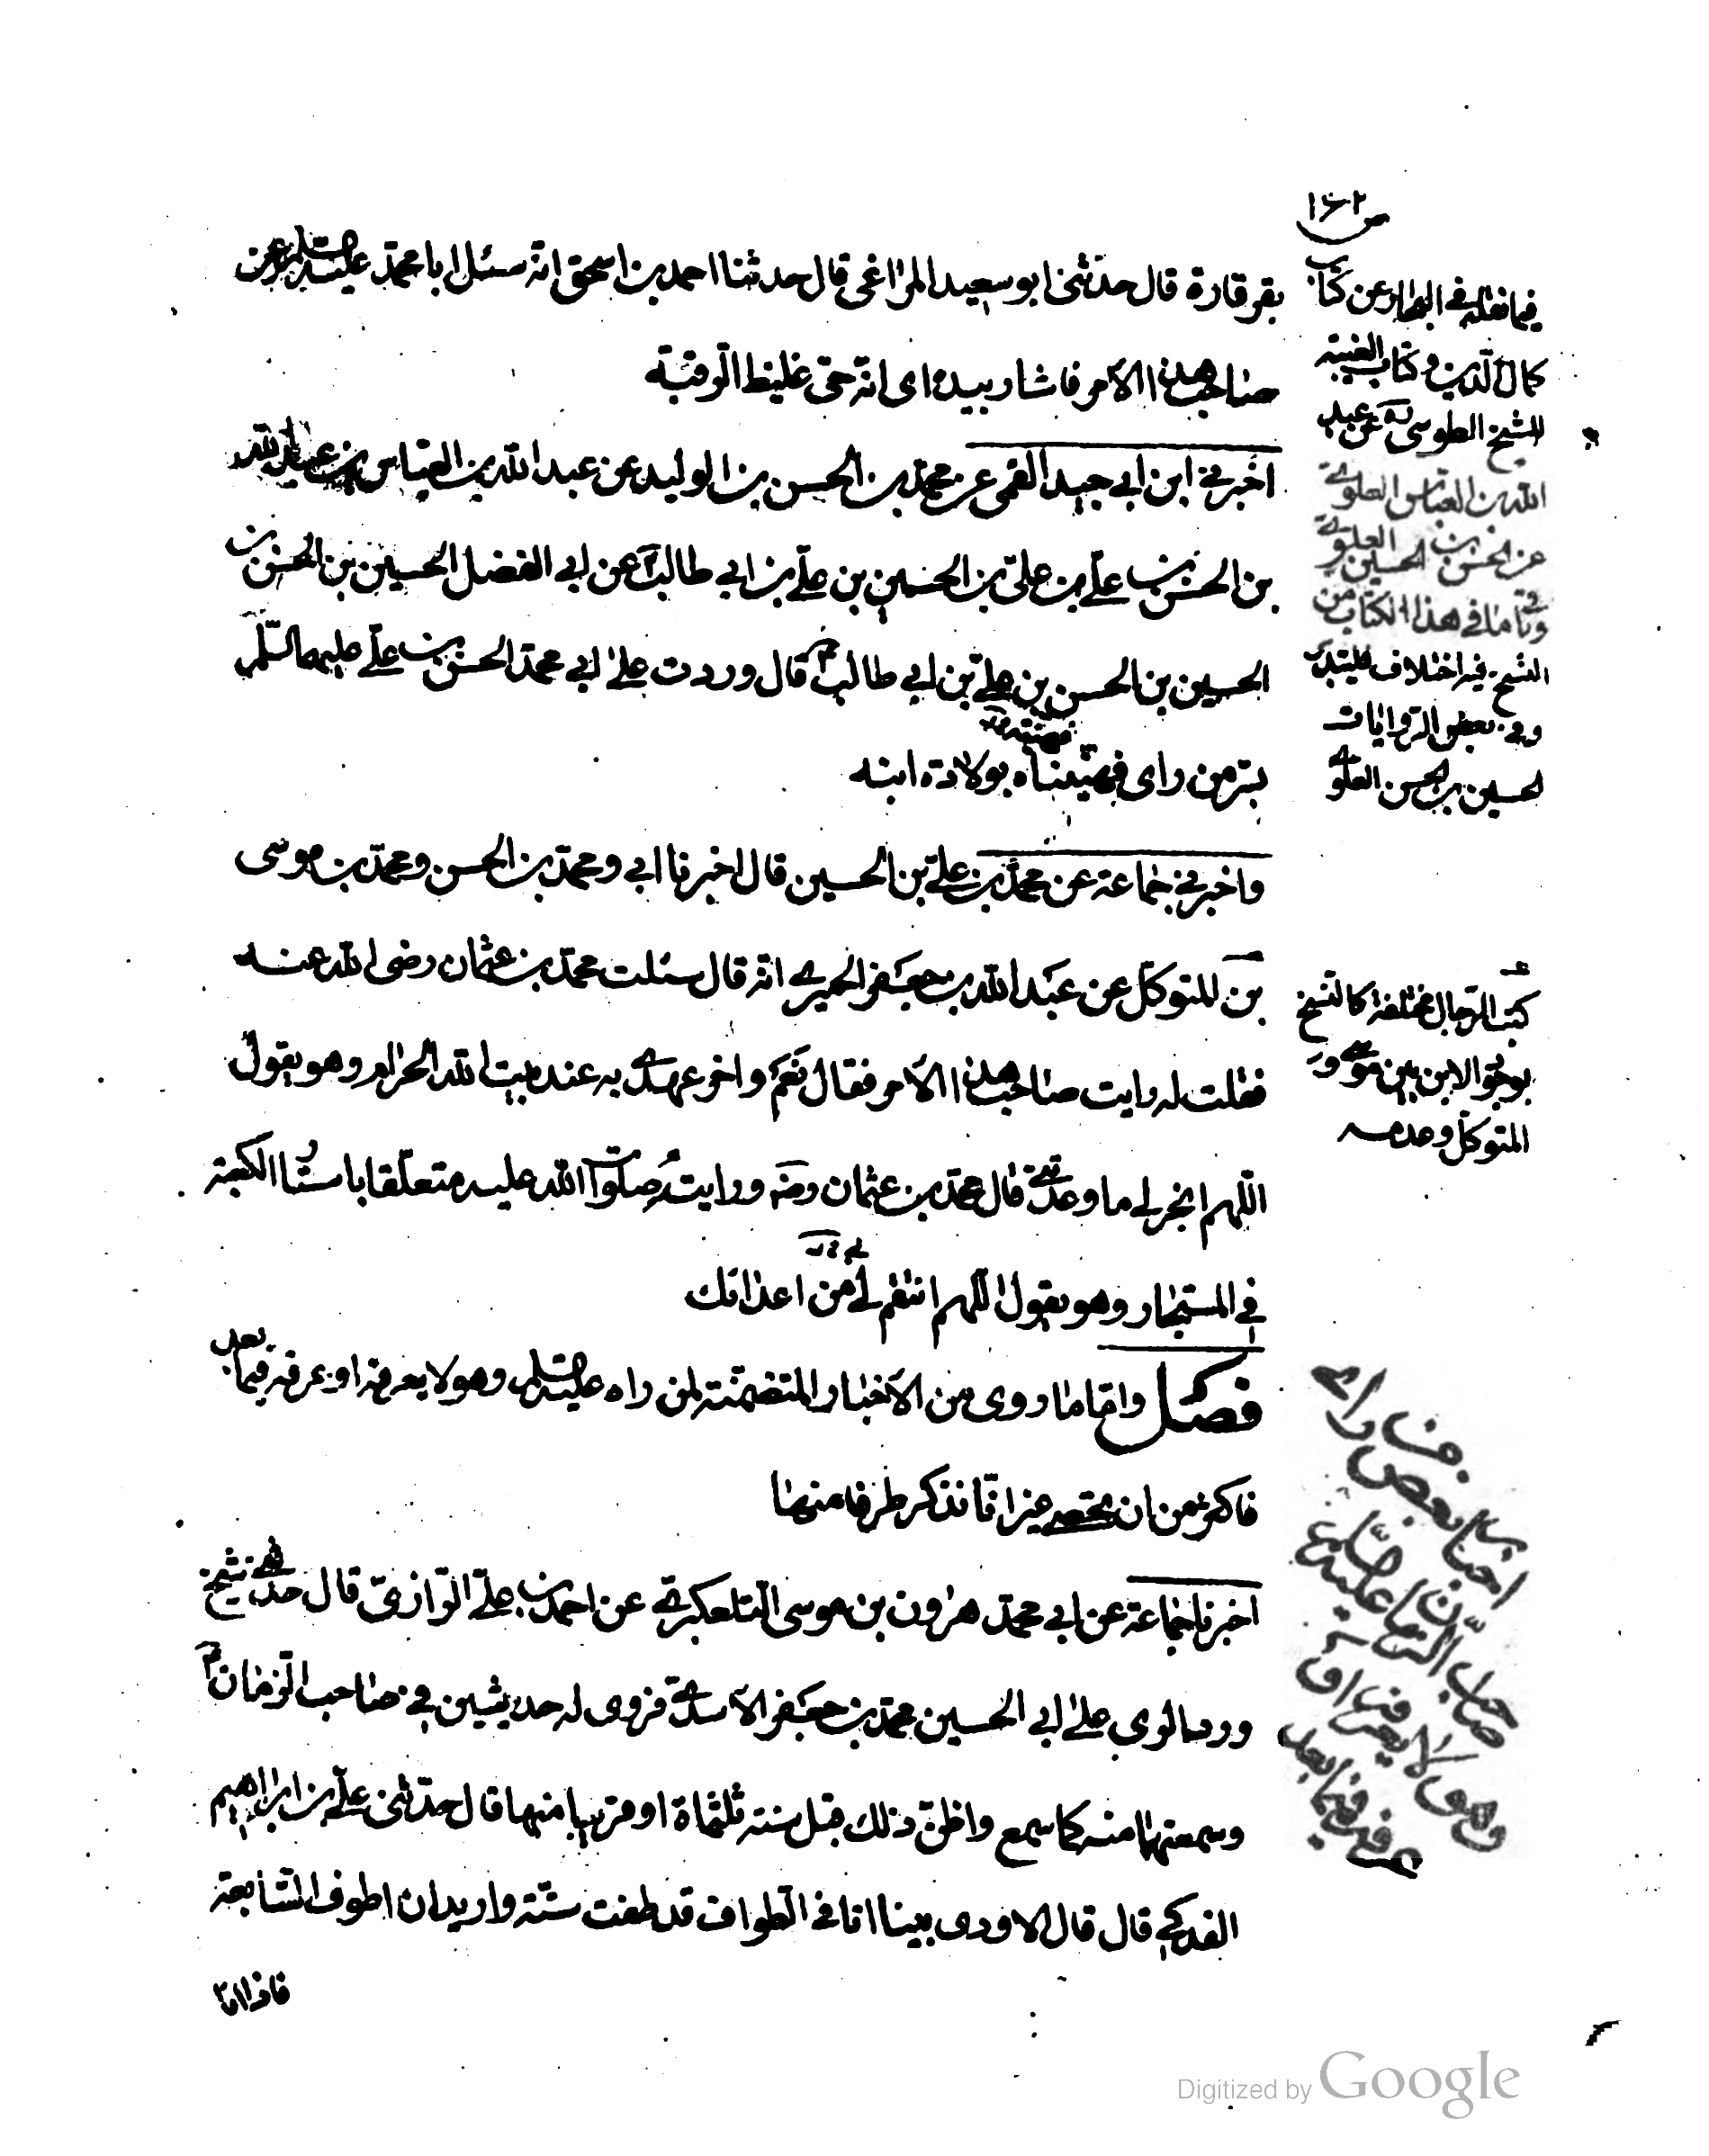 ص ١٦٢
بقرقارة قال حدثنى ابو سعيد المراغى قال حدثنا احمد بن اسحق انه سئل ابا محمد عليه السلم عن
صاحب هذا الامر فاشار بيده اى انه حى غليظ الرقبة
اخبرنى ابن ابى جيد القمى عن محمد بن الحسن بن الوليد عن عبد الله بن العباس بن عبد الله
بن الحسن بن على بن على بن الحسين بن على بن ابى طالب عن ابى الفضل الحسين بن الحسن بن
الحسين بن الحسن بن على بن ابى طالب قال وردت على ابى محمد الحسن بن على عليهما السلم
بسر من راى فهنيناه بولادة ابنه
واخبرنى جماعة عن محمد بن على بن الحسين قال اخبرنا ابى ومحمد بن الحسن ومحمد بن موسى
بن المتوكل عن عبد الله بن جعفر الحميرى انه قال سئلت محمد بن عثمان رضى الله عنه
فقلت له رايت صاحب هذا الامر فقال نعم واخر عهدى به عند بيت الله الحرام وهو يقول
اللهم انجز لى ما وعدتنى قال محمد بن عثمان رضه ورايته صلوات الله عليه متعلقا باستار الكعبة
فى المستجار وهو يقول اللهم انتقم لى من اعدائك
فصل واما ما روى من الاخبار المتضمنة لمن راه عليه السلم وهو لا يعرفه او عرفه فيما بعد
فاكثر من ان يحصر غير انا نذكر طرفا منها
اخبرنا جماعة عن ابى محمد هرون بن موسى التلعكبرى عن احمد بن على الرازى قال حدثنى شيخ
ورد الرى على ابى الحسين محمد بن جعفر الاسدى فروى له حديثين فى صاحب الزمان
وسمعتهما منه كما سمع واظن ذلك قبل سنة ثلثماة او قريبا منها قال حدثنى على بن ابراهيم
الفدكى قال قال الاودى بينا انا فى الطواف قد طفت ستة واريد ان اطوف السابعة
فاذا انا
فيما نقله فى البحار عن كتاب
كمال الدين وكتاب الغيبة
للشيخ الطوسى عن عبد
الله بن العباس العلوى
عن الحسن بن الحسين العلوى
وما فى هذا الكتاب من
النسخ فيه اختلاف فليتدبر
وفى بعض الروايات
لحسين بن الحسن العلوى
كتب الرجال مختلفة كالنسخ
بوجود الابن بين موسى و
المتوكل وعدمه
اخبار بعض من راى
صاحب الزمان عليه السلم
وهو لا يعرفه او
عرفه فيما بعد
Digitized by Google